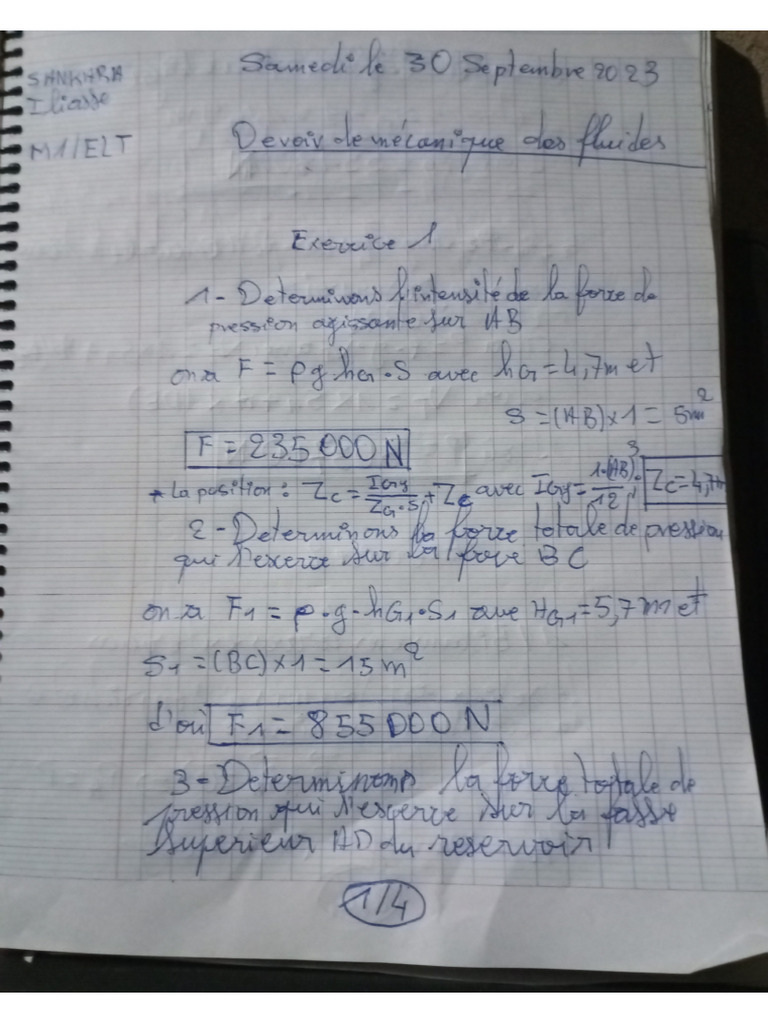 SANKARA
Iliasse
M1/ELT
Samedi le 30 Septembre 2023
Devoir de mécanique des fluides
Exercice 1
1- Determinons l'intensité de la force de
pression agissante sur AB
on a F = ρg.hG.S avec hG = 4,7m et
S = (AB)x1 = 5m²
F = 235 000 N
* La position : Zc = IGy/ZG.S + Zc avec IGy = 1.(AB)³/12 , Zc = 4,7
2- Determinons la force totale de pression
qui s'exerce sur la face BC
on a F1 = ρ.g.hG1.S1 avec HG1 = 5,7m et
S1 = (BC)x1 = 15 m²
d'où F1 = 855 000 N
3- Determinons la force totale de
pression qui s'exerce sur la fasse
Superieur AD du reservoir
1/4